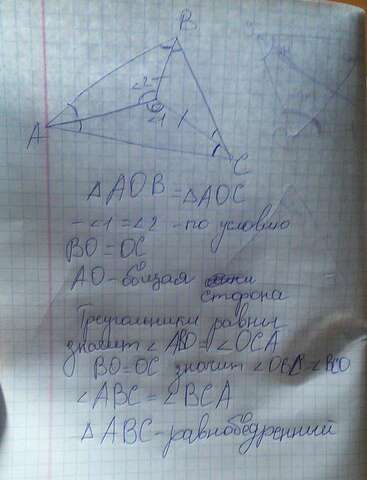 B
∠2
O
∠1
A
C
△AOB = △AOC
-∠1=∠2 - по условию
BO=OC
AO - общая
сторона
Треугольники равны
значит ∠ABO = ∠OCA
BO=OC значит ∠BCO
∠ABC = ∠BCA
△ABC - равнобедренный